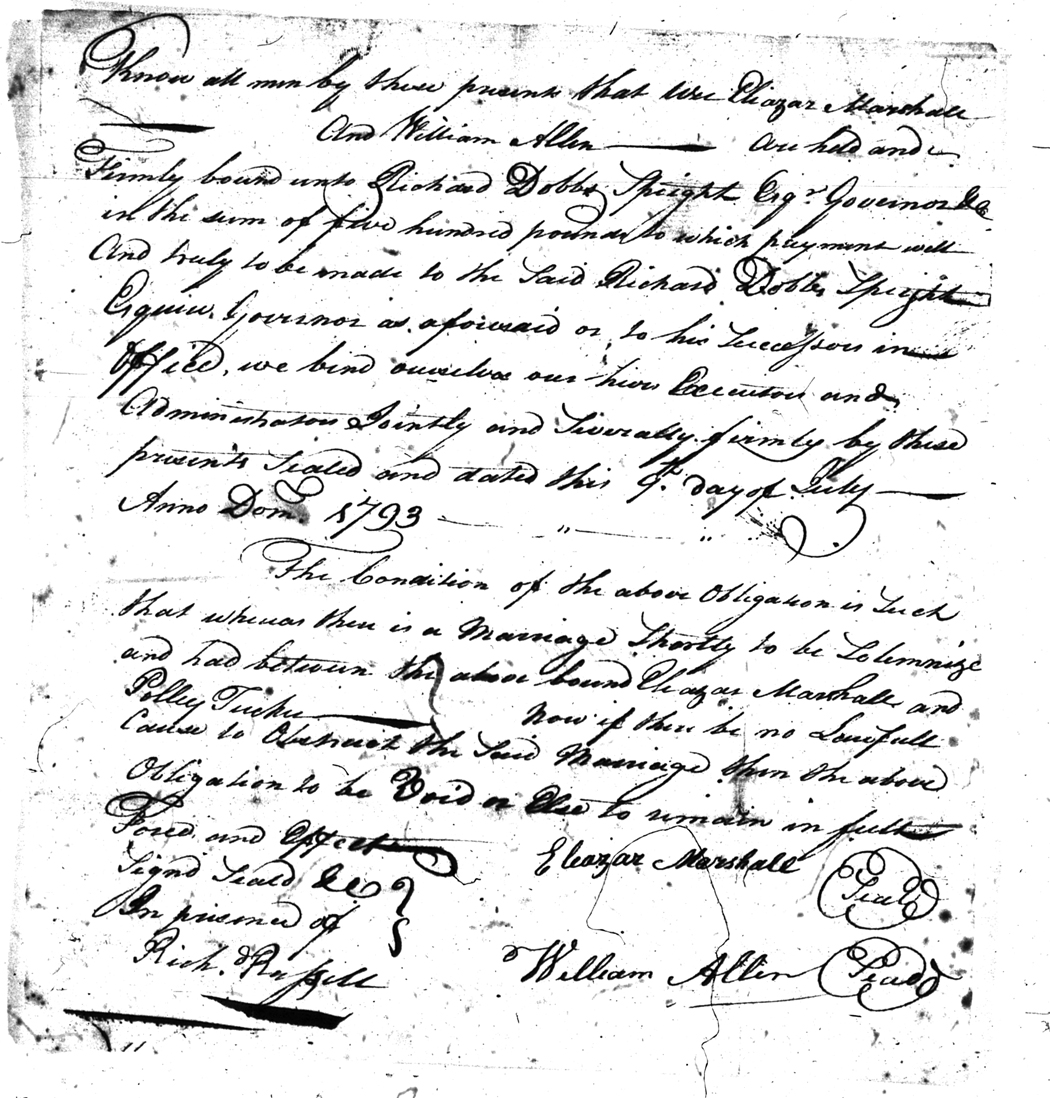 Know all men by these presents that we Eliazar Marshall
And William Allen are held and
Firmly bound unto Richard Dobbs Speight Esqr. Governor &c
in the sum of five hundred pounds to which payment well
And truly to be made to the Said Richard Dobbs Speight
Esquire Governor as aforesaid or to his Successors in
Office, we bind ourselves our heirs Executors and
Administrators Jointly and Severally firmly by these
presents Sealed and dated this 9th day of July
Anno Dom. 1793
The Condition of the above Obligation is Such
that whereas there is a Marriage Shortly to be Solemnize
and had between the above bound Eliazar Marshall and
Polley Tucker Now if there be no Lawfull
Cause to Obstruct the Said Marriage then the above
Obligation to be Void or Else to remain in full
Force and Effect
Signd Seald &c
In presence of
Richd. Russell
Eleazar Marshall Seal
William Allen Seal